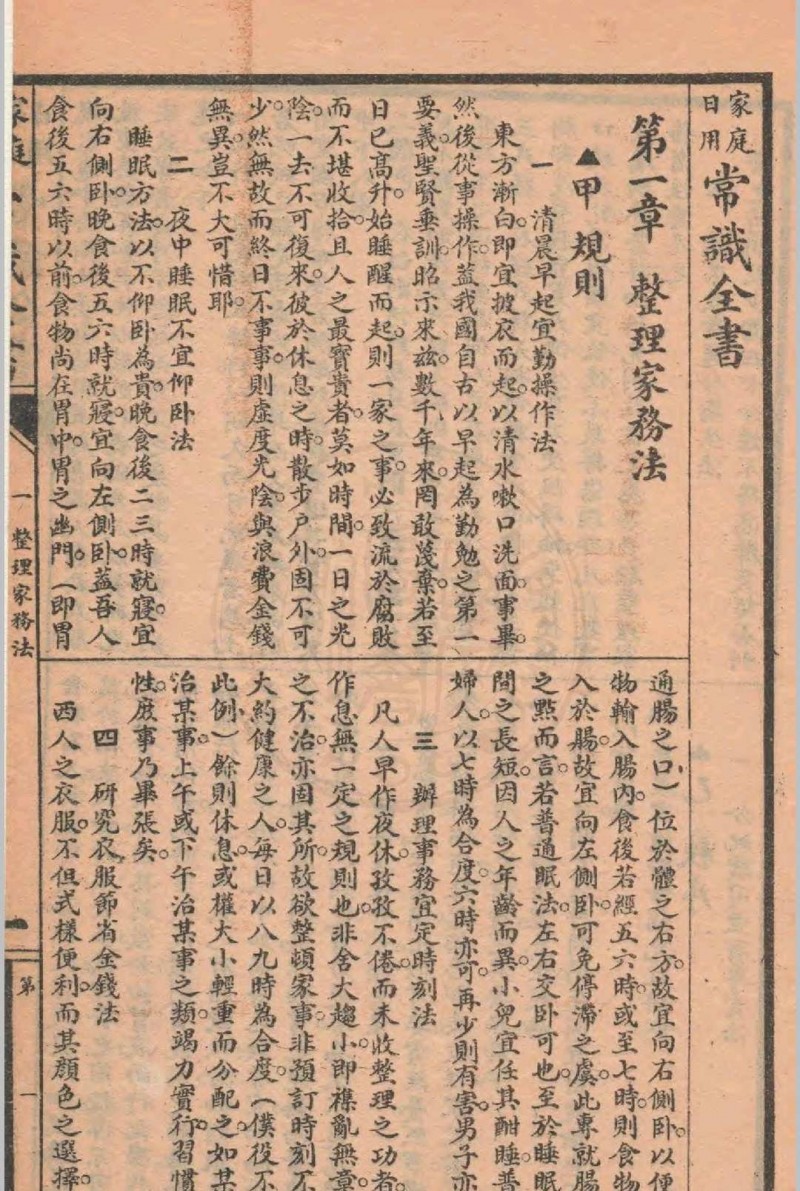 家庭
日用
常識全書
第一章　整理家務法
▲甲　規則
一　清晨早起宜勤操作法
東方漸白。即宜披衣而起。以清水嗽口洗面。事畢。
然後從事操作。蓋我國自古以早起為勤勉之第一
要義。聖賢垂訓。昭示來茲。數千年來。罔敢蔑棄。若至
日已高升。始睡醒而起。則一家之事。必致流於腐敗
而不堪收拾。且人之最寶貴者。莫如時間。一日之光
陰。一去不可復來。彼於休息之時。散步戶外。固不可
少。然無故而終日不事事。則虛度光陰。與浪費金錢
無異。豈不大可惜耶。
二　夜中睡眠不宜仰卧法
睡眠方法。以不仰卧為貴。晚食後二三時就寢。宜
向右側卧。晚食後五六時就寢。宜向左側卧。蓋吾人
食後五六時以前。食物尚在胃中。胃之幽門。（即胃
通腸之口）位於體之右方。故宜向右側卧。以便
物輸入腸內。食後若經五六時。或至七時。則食物
入於腸。故宜向左側卧。可免停滯之虞。此專就腸
之點而言。若普通眠法。左右交卧可也。至於睡眠
間之長短。因人之年齡而異。小兒宜任其酣睡。普
婦人。以七時為合度。六時亦可。再少則有害。男子亦
三　辦理事務宜定時刻法
凡人早作夜休。孜孜不倦。而未收整理之功者。
作息無一定之規則也。非舍大趨小。即襍亂無章
之不治。亦固其所。故欲整頓家事。非預訂時刻不
大約健康之人。每日以八九時為合度。（僕役不
此例）餘則休息。或權大小輕重而分配之。如某
治某事。上午或下午治某事之類。竭力實行。習慣
性。庶事乃畢張矣。
四　研究衣服節省金錢法
西人之衣服。不但式樣便利。而其顏色之選擇。
一　整理家務法
第
一